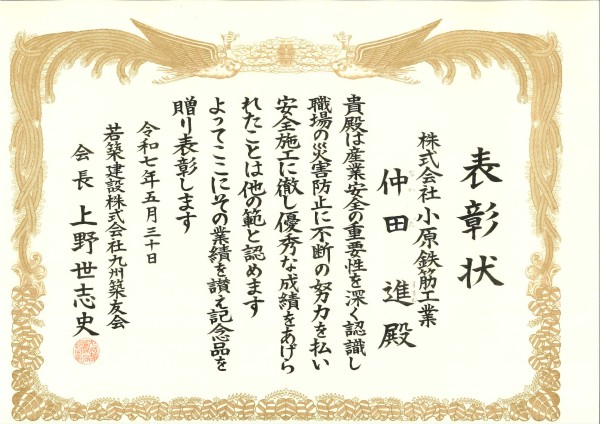 表彰状
株式会社 小原鉄筋工業
仲田 進 殿
貴殿は産業安全の重要性を深く認識し
職場の災害防止に不断の努力を払い
安全施工に徹し優秀な成績をあげら
れたことは他の範と認めます
よってここにその業績を讃え記念品を
贈り表彰します
令和七年五月三十日
若築建設株式会社九州築友会
会長 上野世志史